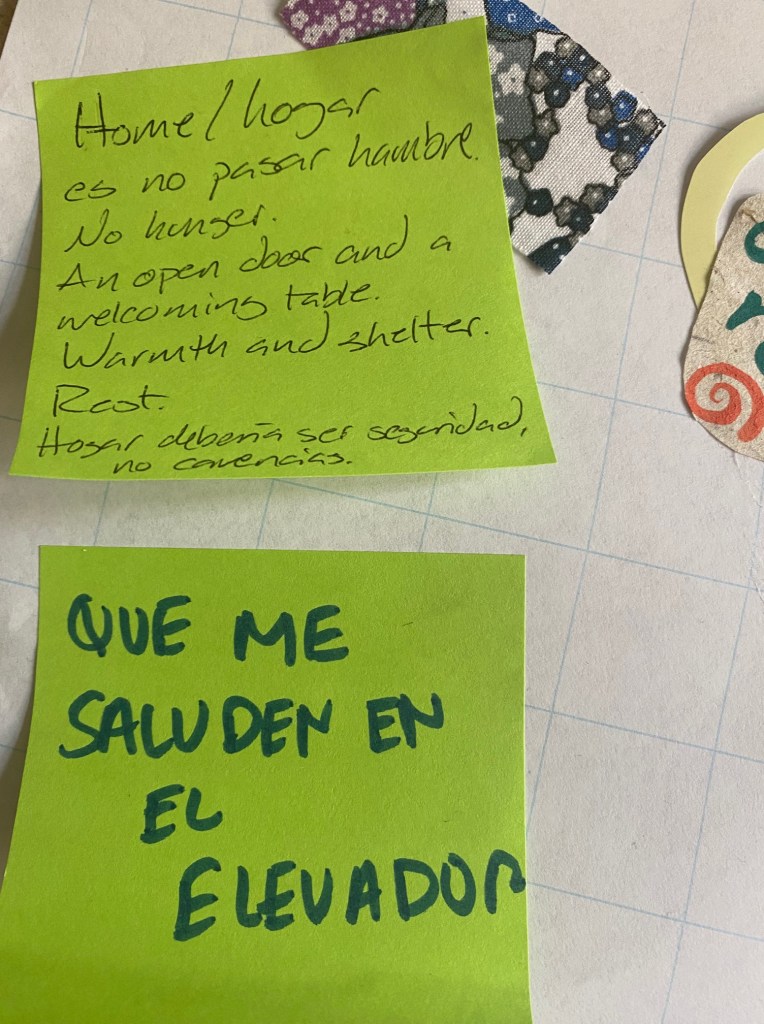 Home/hogar
es no pasar hambre.
No hunger.
An open door and a
welcoming table.
Warmth and shelter.
Rest.
Hogar debería ser seguridad,
no carencias.
QUE ME
SALUDEN EN
EL
ELEVADOR